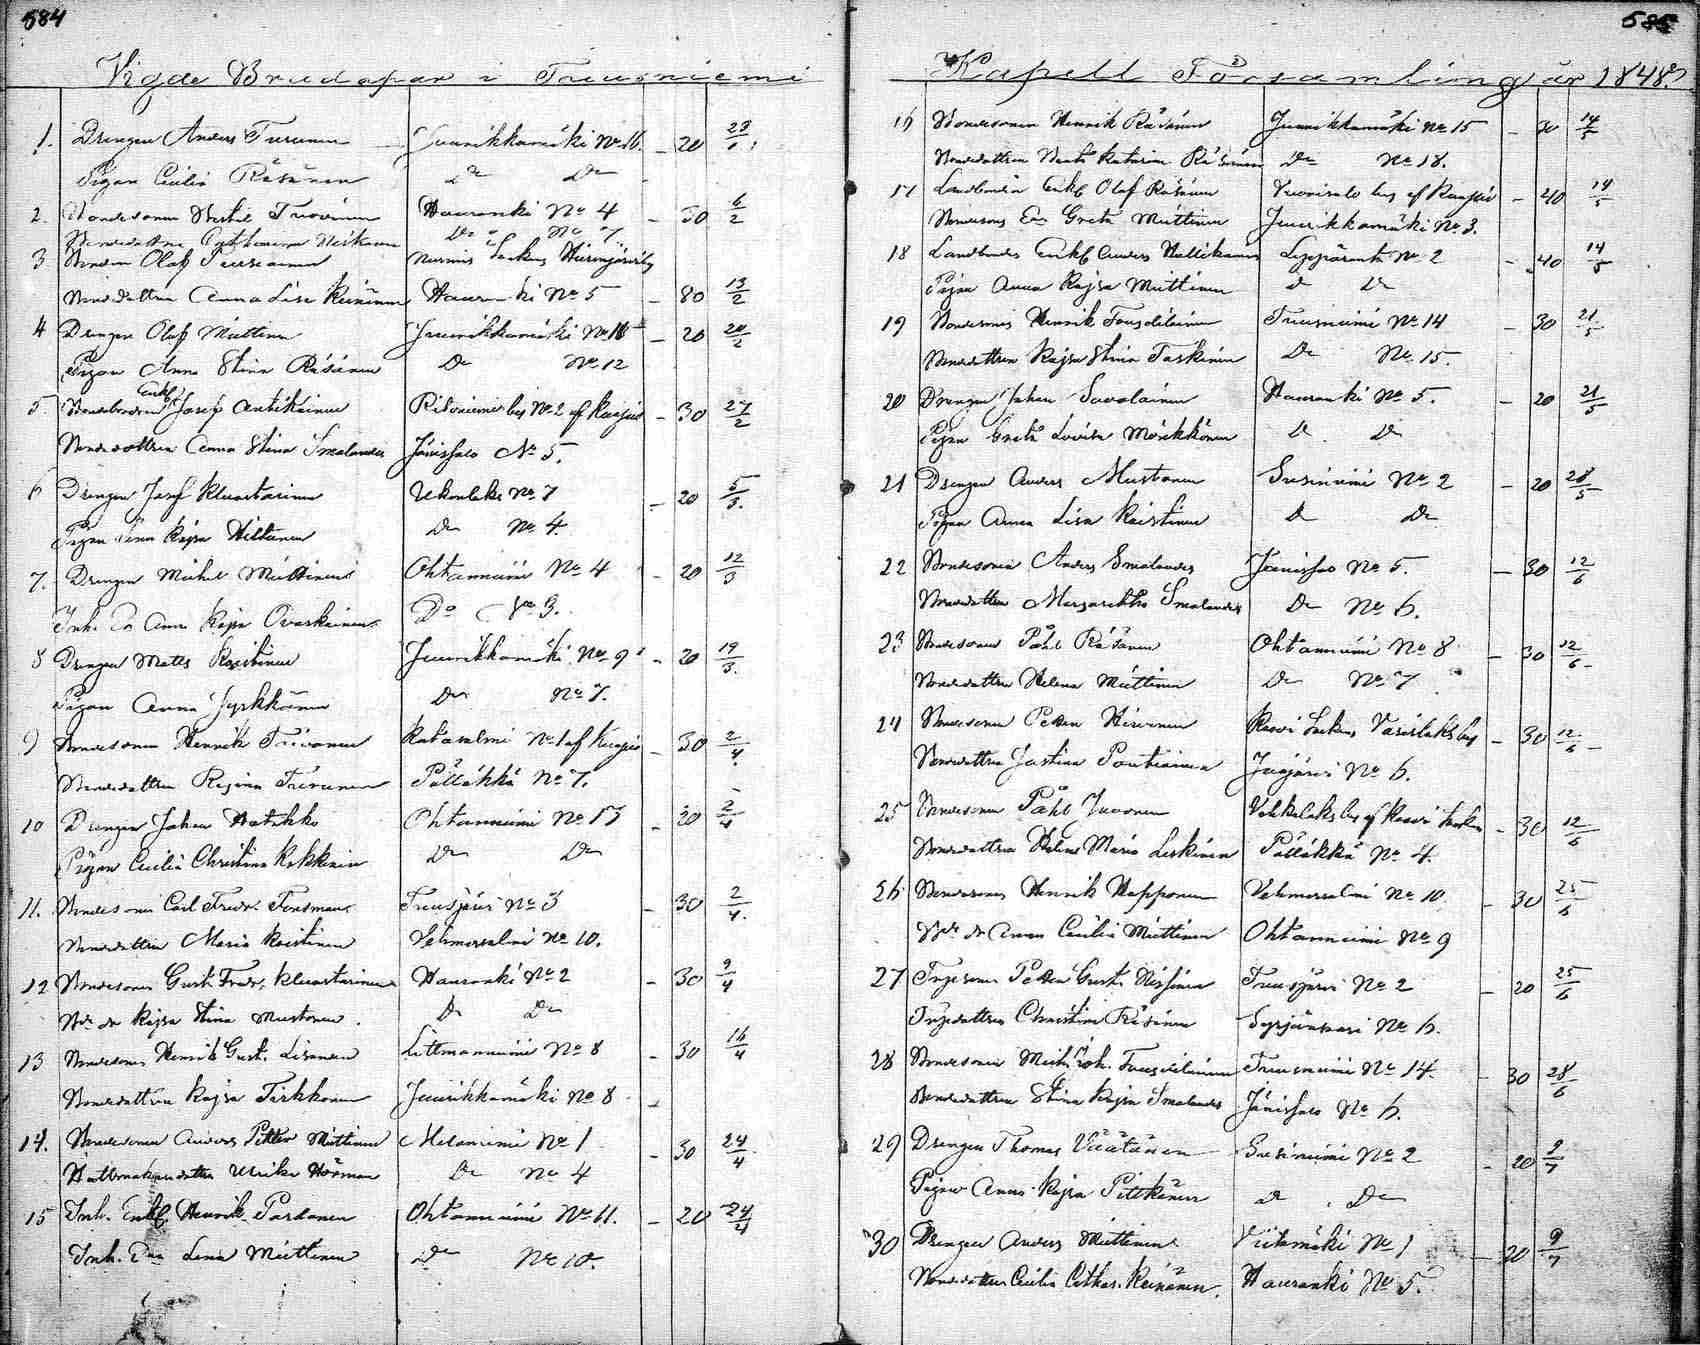 584
Vigde Brudepar i Tuusniemi
1. Drengen Anders Turunen Juurikkamäki No 16. - 20 23/1
Pigan Cecilia Räsänen Do Do
2. Bondesonen Kristi Tuovinen Hauranki No 4 - 30 6/2
Bondedottren Catharina Do No 7
3 Bonden Olof Nurmis Socken
Bondedottren Anna Lisa Keinänen Hauranki No 5 - 80 13/2
4 Drengen Olof Miettinen Juurikkamäki No 16 - 20 20/2
Pigan Anna Stina Räsänen Do No 12
5. Bondesonen Enkl. Josef Antikainen by No 2 af Kuopio - 30 27/2
Bondedottren Anna Stina Smalander Jänissalo No 5.
6 Drengen Josef Kluastarinen Ukonlaks No 7 - 20 5/3.
Pigan Lena Kajsa Hiltunen Do No 4.
7. Drengen Michel Miettinen Ohtanniemi No 4 - 20 12/3
Inh. Do Anna Kajsa Ovaskainen Do No 3.
8 Drengen Matts Koistinen Juurikkamäki No 9 - 20 19/3.
Pigan Anna Jyrkkänen Do No 7.
9 Bondesonen Henrik Toivanen No 1 af Kuopio - 30 2/4
Bondedottren Regina Turunen Pällikkä No 7.
10 Drengen Johan Hatikko Ohtanniemi No 13 - 20 2/4
Pigan Cecilia Christina Kokkoin Do Do
11. Bondesonen Carl Fredr. Forsman Tuusjärvi No 3 - 30 2/4.
Bondedottren Maria Koistinen Vehmersalmi No 10.
12 Bondesonen Gust. Fredr. Kluastarinen Hauranki No 2 - 30 9/4
Bde dr Kajsa Stina Mustonen. Do Do
13 Bondesonen Henrik Gust. Littmanniemi No 8 - 30 16/4
Bondedottren Kajsa Tirkkonen Juurikkamäki No 8 -
14. Bondesonen Anders Petter Miettinen Melaniemi No 1 - 30 24/4
Ulrika Do No 4
15 Inh. Enkl. Henrik Partanen Ohtanniemi No 11. - 20 24/4
Inh. Lena Miettinen Do No 10.
585
Kapell Församling år 1848.
16 Bondesonen Henrik Räsänen Juurikkamäki No 15 - 30 14/5
Bondedottren Katarina Räsänen Do No 18.
17 Landbonden Enkl. Olof Räsänen Vuorisalo by af Kuopio - 40 14/5
Eva Greta Miettinen Juurikkamäki No 3.
18 Enkl. Anders No 2 - 40 14/5
Pigan Anna Kajsa Miettinen Do Do
19 Bondesonen Henrik Tuusniemi No 14 - 30 21/5
Bondedottren Kajsa Stina Taskinen Do No 15.
20 Drengen Johan Savolainen Hauranki No 5. - 20 21/5
Pigan Greta Lovisa Mörkkönen Do Do
21 Drengen Anders Mustonen Susiniemi No 2 - 20 28/5
Pigan Anna Lisa Koistinen Do Do
22 Bondesonen Anders Smalander Jänissalo No 5. - 30 12/6
Bondedottren Margaretha Smalander Do No 6.
23 Bondesonen Påhl Räsänen Ohtanniemi No 8 - 30 12/6
Bondedottren Helena Miettinen Do No 7
24 Bondesonen Petter Hirvonen Kaavi Socken by - 30 12/6
Bondedottren Justina Pontinen Juojärvi No 6.
25 Bondesonen Påhl Juvonen by af Kaavi Socken - 30 12/6
Bondedottren Helena Maria Leskinen Pällikkä No 4.
26 Bondesonen Henrik Happonen Vehmersalmi No 10 - 30 25/6
Bde dr Anna Cecilia Miettinen Ohtanniemi No 9
27 Petter Gust. Tuusjärvi No 2 - 20 25/6
Christina Räsänen No 6.
28 Bondesonen Mich. Joh. Tuusniemi No 14. - 30 28/6
Bondedottren Stina Kajsa Smalander Jänissalo No 6.
29 Drengen Thomas Väätänen Susiniemi No 2 - 20 9/7
Pigan Anna Kajsa Pitkänen Do Do
30 Drengen Anders Miettinen Viitamäki No 1 - 20 9/7
Bondedottren Cecilia Cathar. Keinänen. Hauranki No 5.